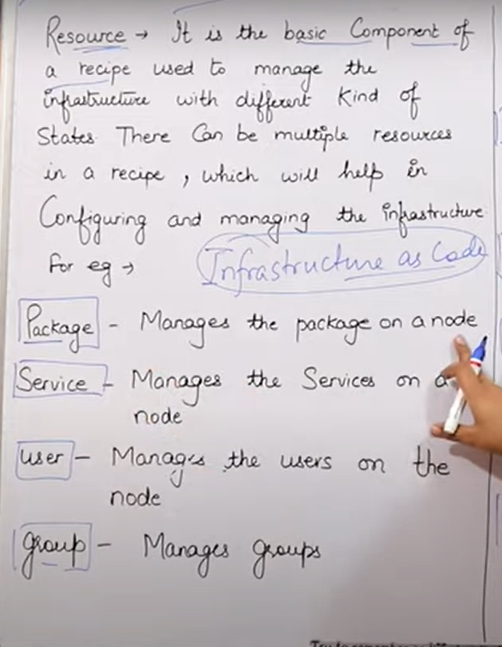 Resource → It is the basic Component of
a recipe used to manage the
infrastructure with different Kind of
States There Can be multiple resources
in a recipe, which will help in
Configuring and managing the infrastructure
For eg →
Infrastructure as Code
Package - Manages the package on a node
Service - Manages the Services on a
node
user - Manages the users on the
node
group - Manages groups